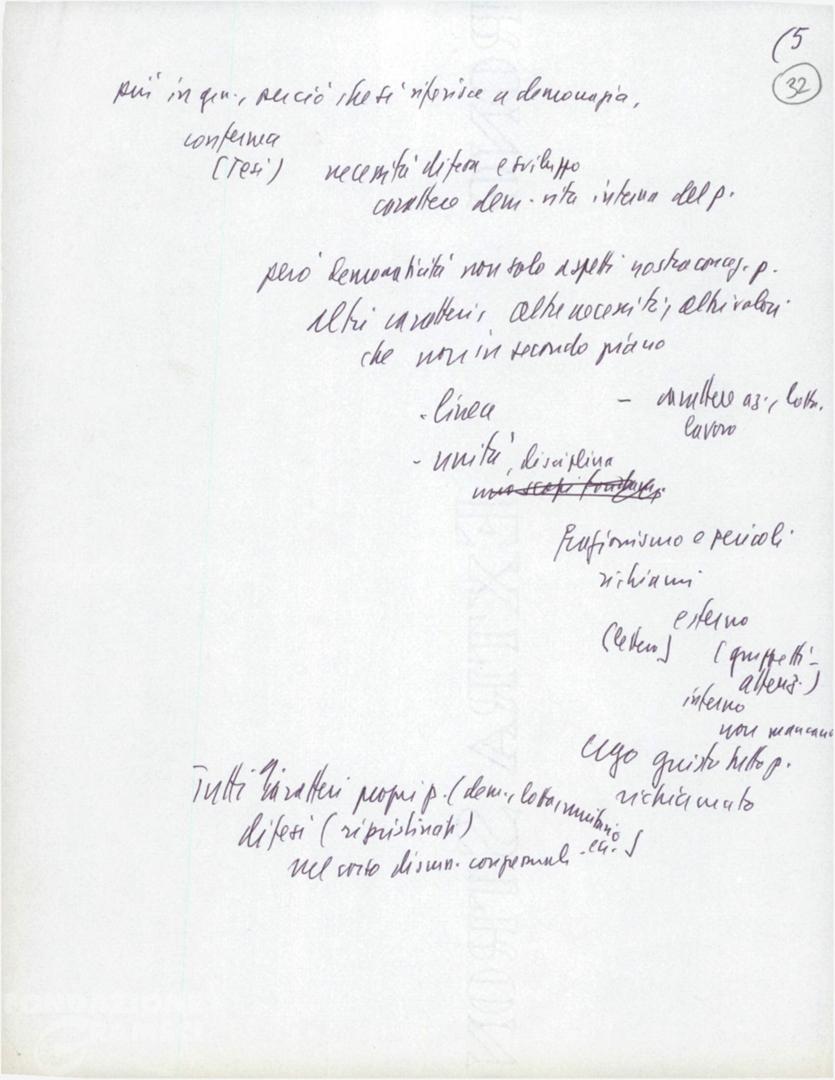 (5
32
più in gen., per ciò che si riferisce a democrazia,
conferma
(Tesi) necessità difesa e sviluppo
carattere dem. vita interna del p.
però democraticità non solo aspetti nostra concez. p.
altri caratteri, altre necessità, altri valori
che non in secondo piano
- linea
- carattere az., lotta,
lavoro
- unità, disciplina
Frazionismo e pericoli
richiami
esterno
(lettera) (gruppetti -
attenz.)
interno
non mancano
Ugo giusto tutto p.
richiamato
Tutti i caratteri propri p. (dem., lotta, unitario
ecc.)
difesi (ripristinati)
nel corso discuss. congressuali
FONDAZIONE
GRAMSCI